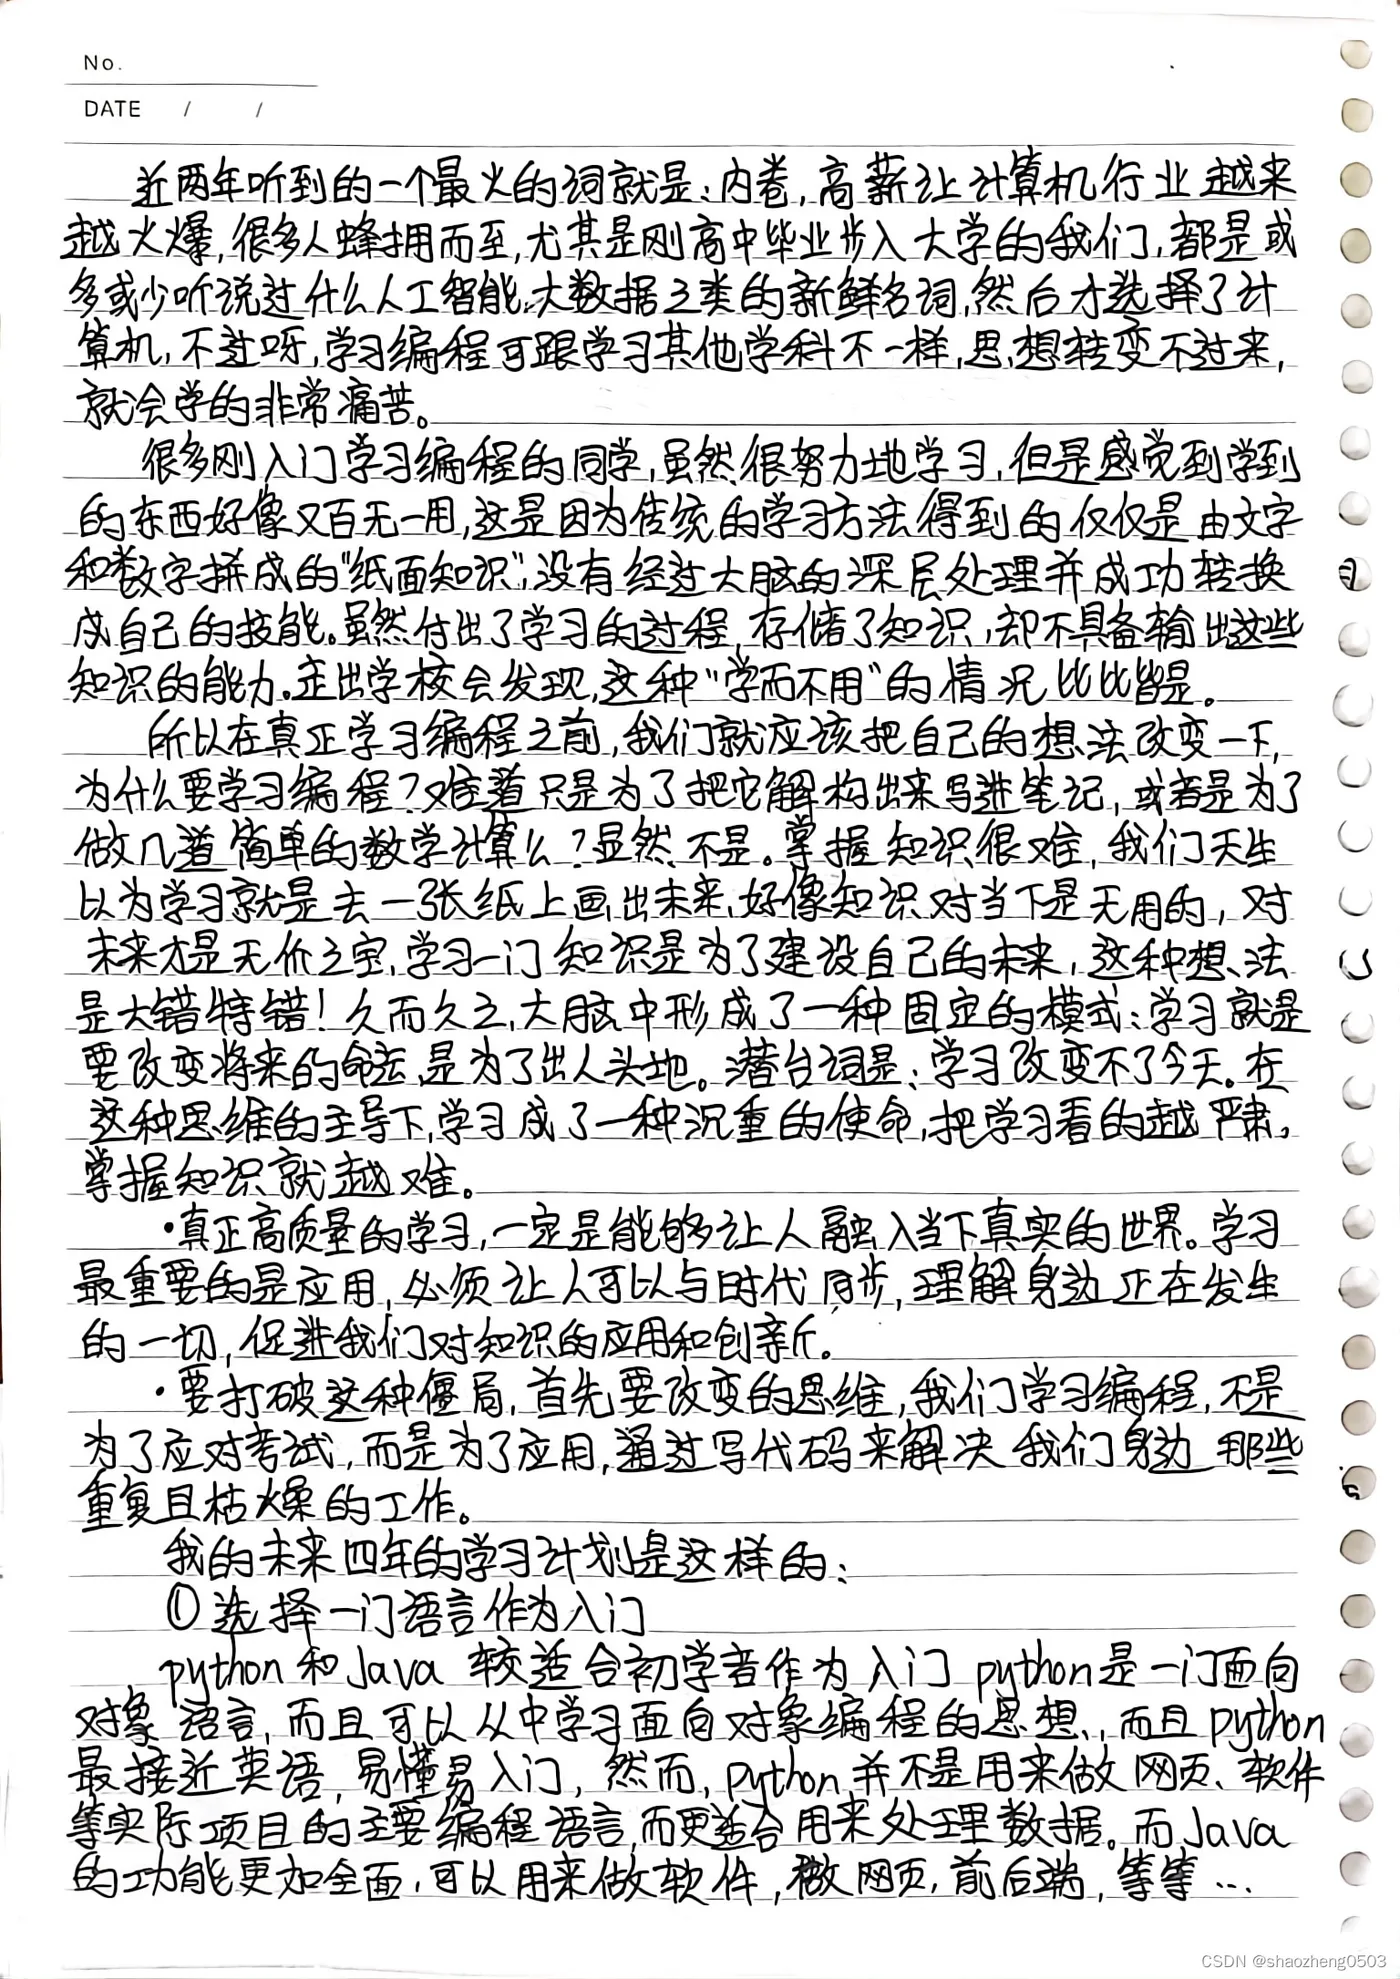 No.
DATE / /
近两年听到的一个最火的词就是:内卷,高薪让计算机行业越来
越火爆,很多人蜂拥而至,尤其是刚高中毕业步入大学的我们,都是或
多或少听说过什么人工智能、大数据之类的新鲜名词,然后才选择了计
算机,不过呀,学习编程可跟学习其他学科不一样,思想转变不过来,
就会学的非常痛苦。
很多刚入门学习编程的同学,虽然很努力地学习,但是感觉到学到
的东西好像又百无一用,这是因为传统的学习方法得到的仅仅是由文字
和数字拼成的"纸面知识",没有经过大脑的深层处理并成功转换
成自己的技能。虽然付出了学习的过程,存储了知识,却不具备输出这些
知识的能力。走出学校会发现,这种"学而不用"的情况比比皆是。
所以在真正学习编程之前,我们就应该把自己的想法改变一下,
为什么要学习编程?难道只是为了把它解构出来写进笔记,或者是为了
做几道简单的数学计算么?显然不是。掌握知识很难,我们天生
以为学习就是去一张纸上画出未来,好像知识对当下是无用的,对
未来才是无价之宝,学习一门知识是为了建设自己的未来,这种想法
是大错特错!久而久之,大脑中形成了一种固定的模式:学习就是
要改变将来的命运,是为了出人头地。潜台词是:学习改变不了今天。在
这种思维的主导下,学习成了一种沉重的使命,把学习看的越严肃,
掌握知识就越难。
·真正高质量的学习,一定是能够让人融入当下真实的世界。学习
最重要的是应用,必须让人可以与时代同步,理解身边正在发生
的一切,促进我们对知识的应用和创新。
·要打破这种僵局,首先要改变的思维,我们学习编程,不是
为了应对考试,而是为了应用,通过写代码来解决我们身边那些
重复且枯燥的工作。
我的未来四年的学习计划是这样的:
①选择一门语言作为入门
python和Java 较适合初学者作为入门 python是一门面向
对象语言,而且可以从中学习面向对象编程的思想,而且python
最接近英语,易懂易入门,然而,python并不是用来做网页、软件
等实际项目的主要编程语言,而更适合用来处理数据。而Java
的功能更加全面,可以用来做软件,做网页,前后端,等等…
CSDN @shaozheng0503